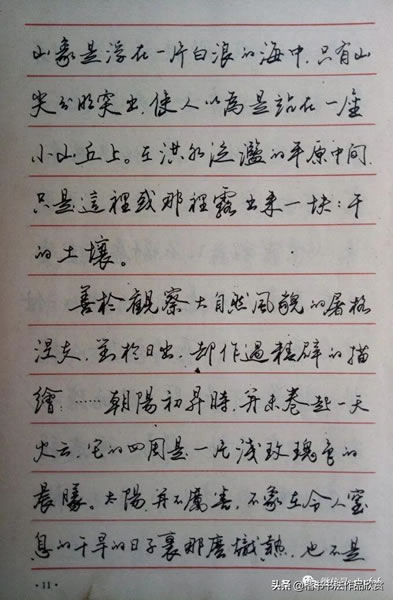 山象是浮在一片白浪的海中,只有山
尖分明突出,使人以為是站在一座
小山丘上。在洪水泛濫的平原中間,
只是這裡或那裡露出来一块:干
的土壤。
善於觀察大自然風貌的屠格
涅夫,對於日出,却作過精辟的描
繪:……朝陽初昇時,并未卷起一天
火云,它的四周是一片淺玫瑰色的
晨曦。太陽,并不厲害,不象在令人窒
息的干旱的日子裏那麼熾熱,也不是
·11·
头条 @楷书书法作品欣赏